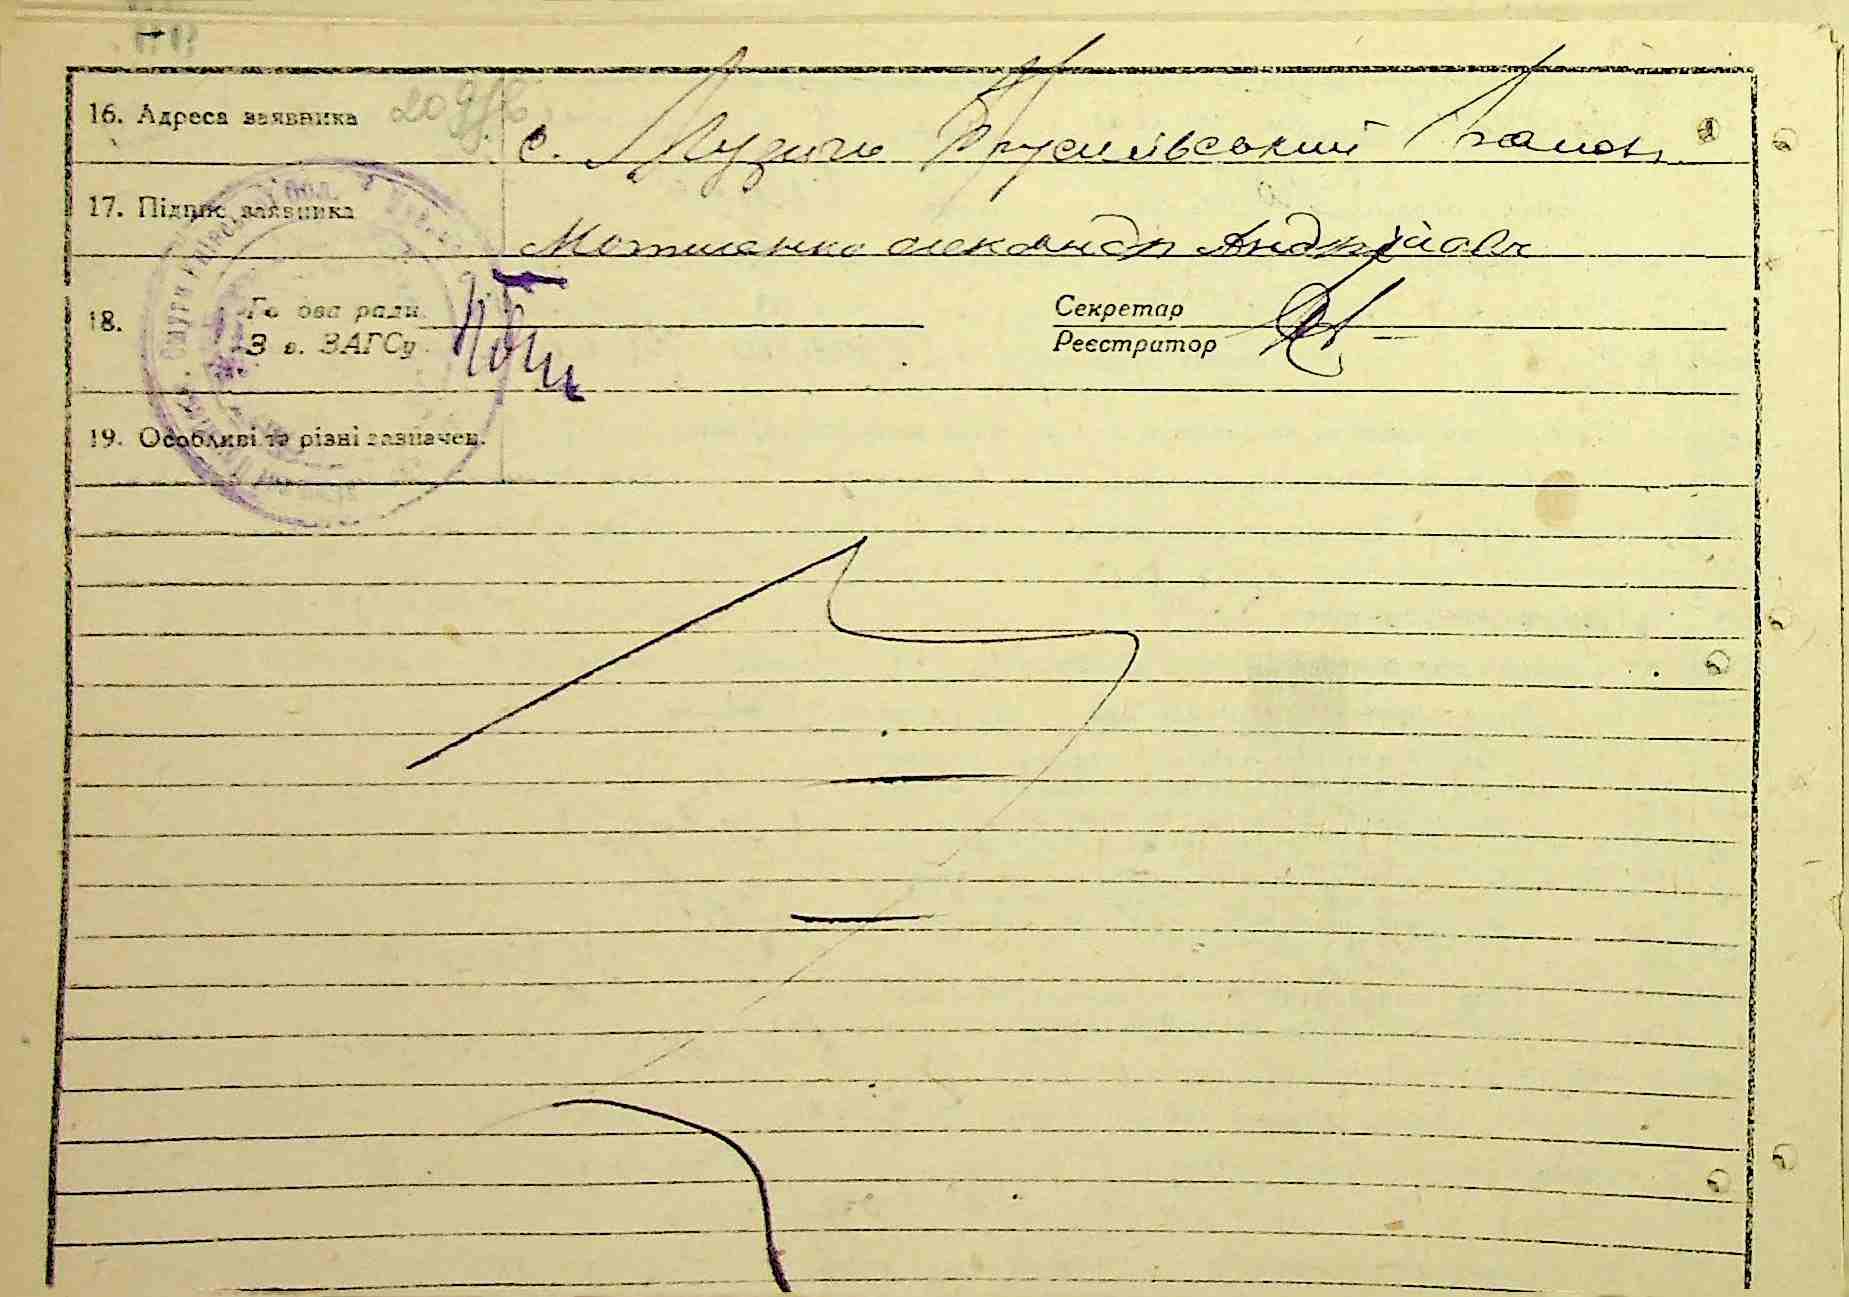 16. Адреса заявника с. Музичі Брусилівський район
17. Підпис заявника Мотиленко олександр Андрійович
18. Голова ради Секретар
Зав. ЗАГСу Реєстратор
19. Особливі та різні зазначен.